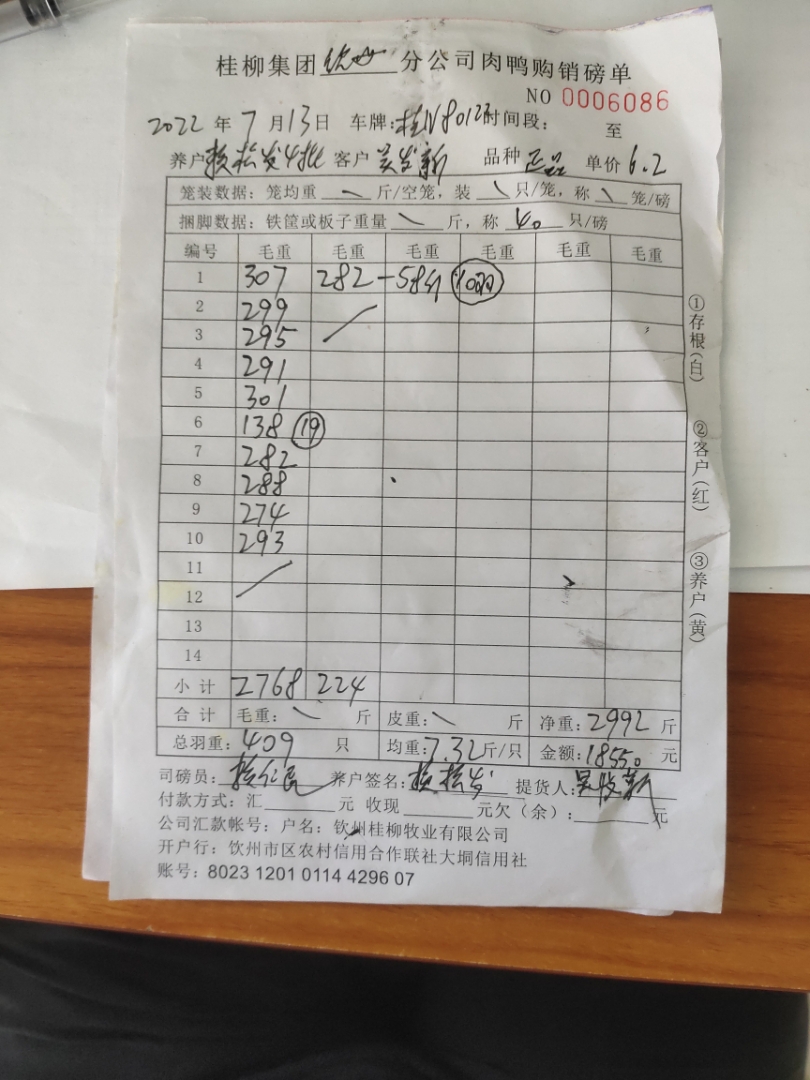 桂柳集团钦州分公司肉鸭购销磅单
NO 0006086
2022年7月13日 车牌:桂N8012时间段: 至
养户赖松发4批 客户吴发新 品种正品 单价6.2
笼装数据: 笼均重 \ 斤/空笼, 装 \ 只/笼, 称 \ 笼/磅
捆脚数据: 铁筐或板子重量 \ 斤, 称 40 只/磅
编号 毛重 毛重 毛重 毛重 毛重 毛重
1 307 282 -58斤
2 299
3 295
4 291
5 301
6 138 19
7 282
8 288
9 274
10 293
11
12
13
14
小计 2768 224
合计 毛重: \ 斤 皮重: \ 斤 净重: 2992 斤
总羽重: 409 只 均重: 7.32斤/只 金额: 18550 元
司磅员: 养户签名: 赖松发 提货人:
付款方式: 汇 元 收现 元欠(余): 元
公司汇款帐号: 户名: 钦州桂柳牧业有限公司
开户行: 饮州市区农村信用合作联社大垌信用社
账号: 8023 1201 0114 4296 07
①存根(白)
②客户(红)
③养户(黄)